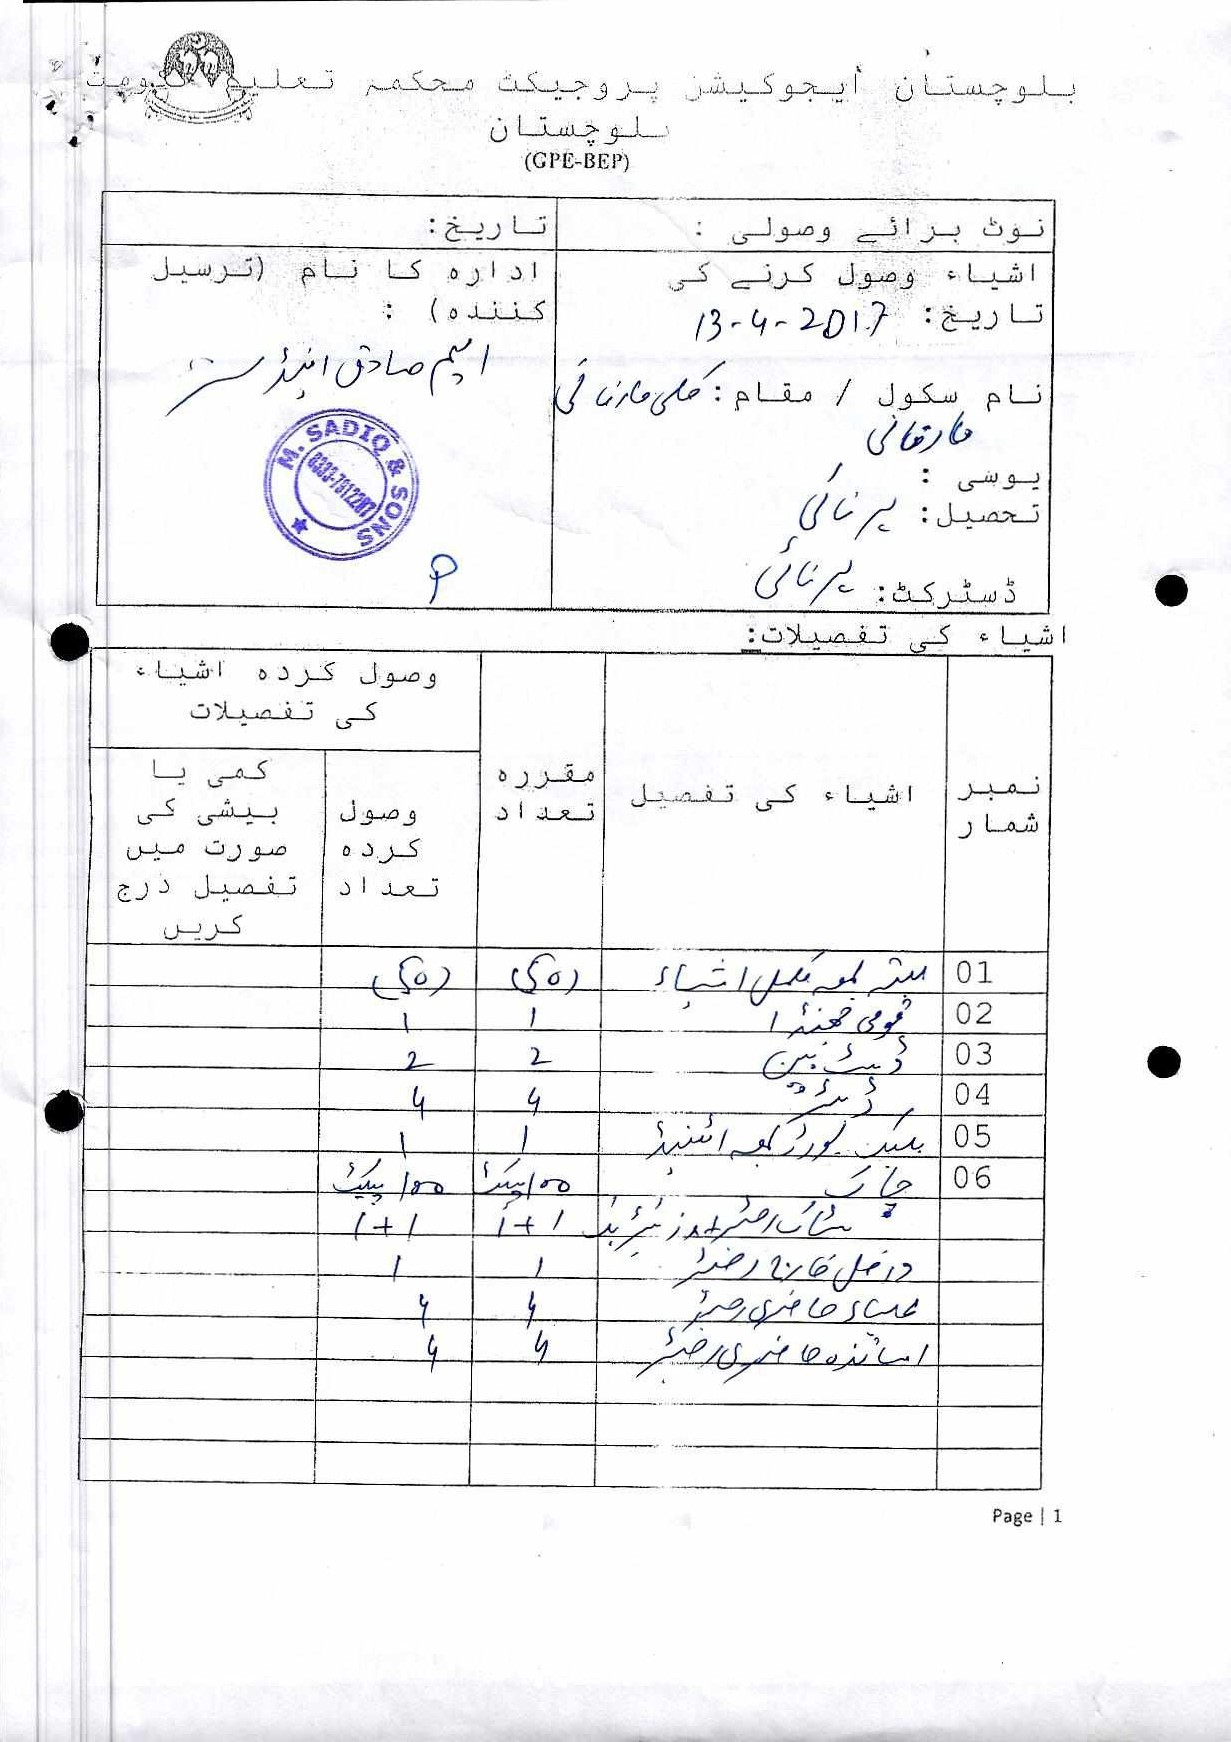 بلوچستان ایجوکیشن پروجیکٹ محکمہ تعلیم حکومت
بلوچستان
(GPE-BEP)
نوٹ برائے وصولی :
تاریخ:
اشیاء وصول کرنے کی
تاریخ: 13-4-2017
نام سکول / مقام: کلی
یوسی :
تحصیل: ہرنائی
ڈسٹرکٹ: ہرنائی
ادارہ کا نام (ترسیل
کنندہ) :
ایم صادق اینڈ سنز
M. SADIQ & SONS
اشیاء کی تفصیلات:
نمبر شمار
اشیاء کی تفصیل
مقررہ تعداد
وصول کردہ اشیاء کی تفصیلات
وصول کردہ تعداد
کمی یا بیشی کی صورت میں تفصیل درج کریں
01 بستہ بمعہ مکمل اشیاء (50) (50)
02 قومی جھنڈا 1 1
03 ڈسٹ بین 2 2
04 ڈسٹر 4 4
05 بلیک بورڈ بمعہ اسٹینڈ 1 1
06 چاک 100 پیکٹ 100 پیکٹ
سٹاک رجسٹر + وزیٹر بک 1+1 1+1
داخل خارج رجسٹر 1 1
طلباء حاضری رجسٹر 4 4
اساتذہ حاضری رجسٹر 4 4
Page | 1